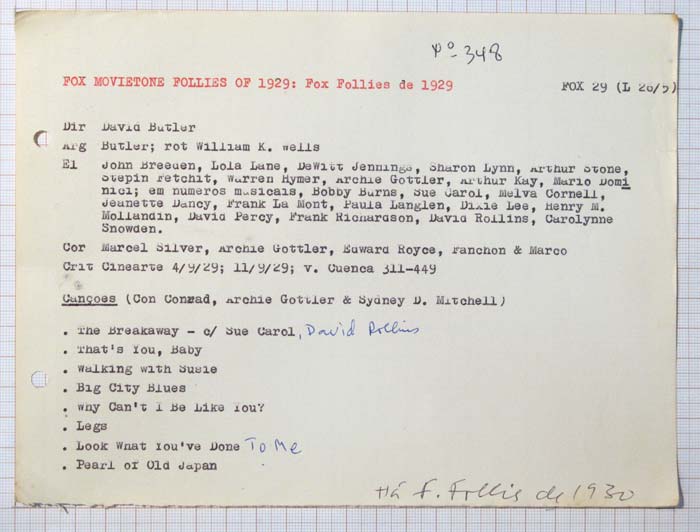 Pº 348
FOX MOVIETONE FOLLIES OF 1929: Fox Follies de 1929 FOX 29 (L 26/5)
Dir David Butler
Arg Butler; rot William K. Wells
El John Breeden, Lola Lane, DeWitt Jennings, Sharon Lynn, Arthur Stone,
Stepin Fetchit, Warren Hymer, Archie Gottler, Arthur Kay, Mario Domi
nici; em numeros musicais, Bobby Burns, Sue Carol, Melva Cornell,
Jeanette Dancy, Frank La Mont, Paula Langlen, Dixie Lee, Henry M.
Mollandin, David Percy, Frank Richardson, David Rollins, Carolynne
Snowden.
Cor Marcel Silver, Archie Gottler, Edward Royce, Fanchon & Marco
Crit Cinearte 4/9/29; 11/9/29; v. Cuenca 311-449
Canções (Con Conrad, Archie Gottler & Sydney D. Mitchell)
. The Breakaway - c/ Sue Carol, David Rollins
. That's You, Baby
. Walking with Susie
. Big City Blues
. Why Can't I Be Like You?
. Legs
. Look What You've Done To Me
. Pearl of Old Japan
Há F. Follis de 1930